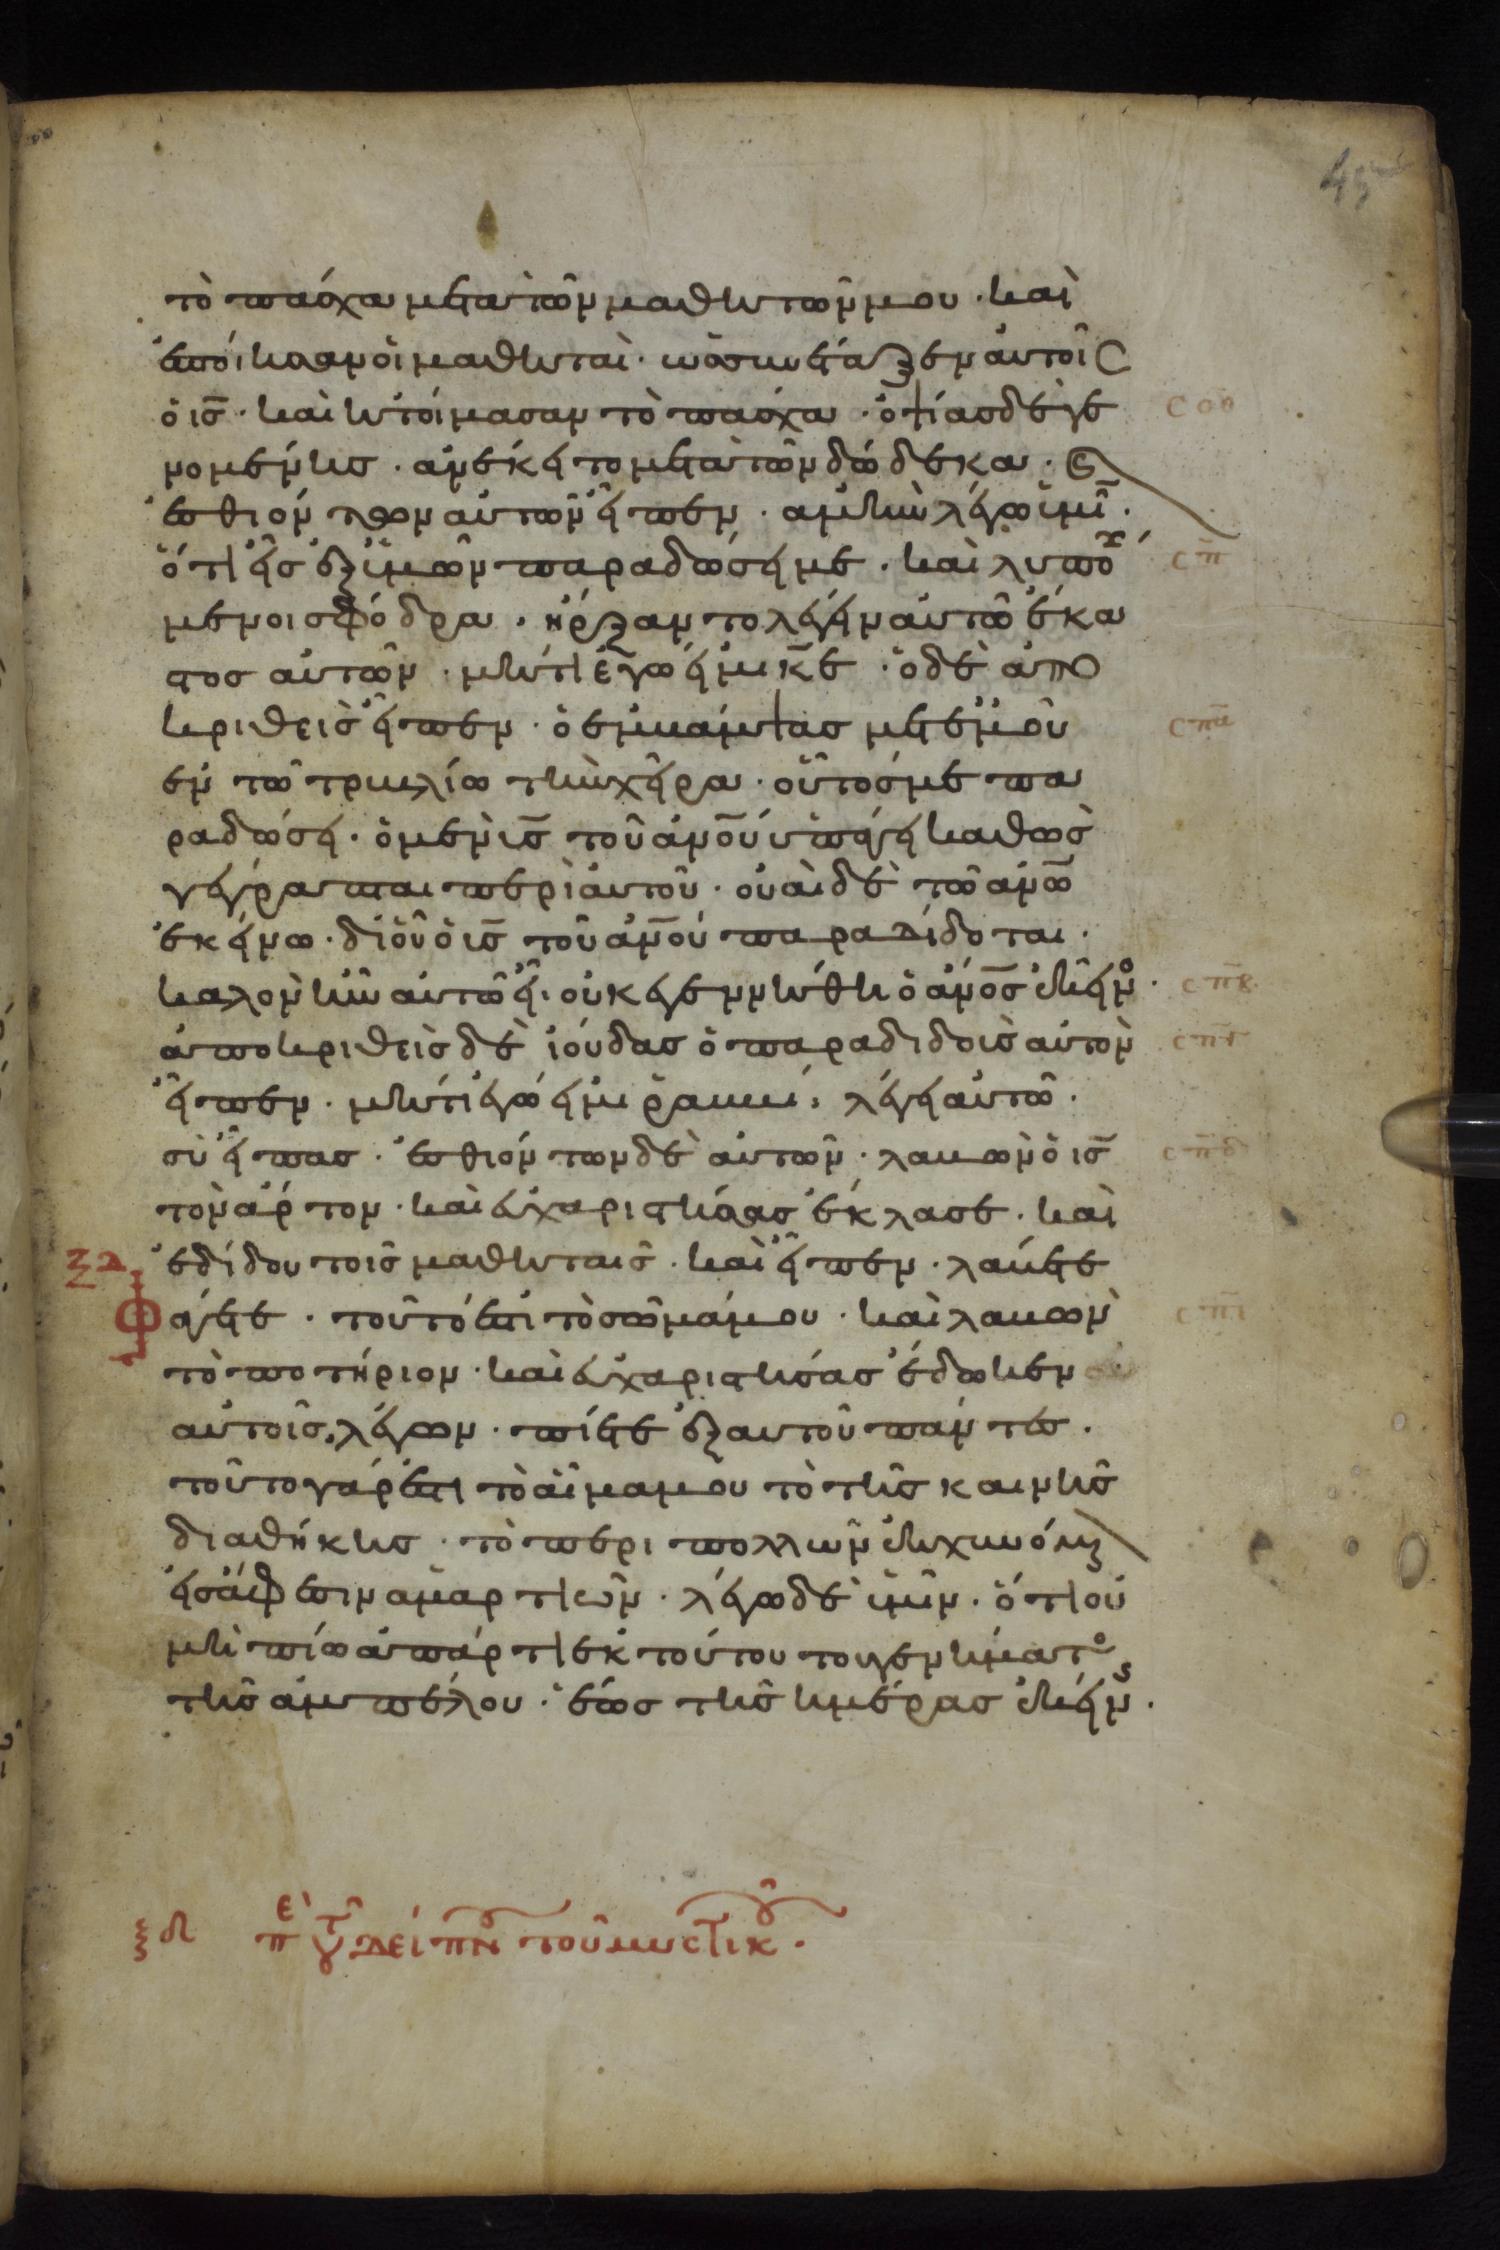 45
τὸ πάσχα μετὰ τῶν μαθητῶν μου · καὶ
ἐποίησαν οἱ μαθηταὶ · ὡς συνέταξεν αὐτοῖς
ὁ ις̅ · καὶ ητοίμασαν τὸ πάσχα · ὀψίας δὲ γε
νομένης · ἀνέκειτο μετὰ τῶν δώδεκα · καὶ
ἐσθιόντων αὐτῶν εἶπεν · ἀμὴν λέγω ὑμῖ̅ ·
ὅτι εἷς ἐξ ὑμῶν παραδώσει με · καὶ λυπού
μενοι σφόδρα · ἤρξαντο λέγειν αὐτῶ ἕκα
στος αὐτῶν · μήτι ἐγώ εἰμι κ̅ε · ὁ δὲ ἀπο
κριθεὶς εἶπεν · ὁ ἐμβάψας μετ ἐμοῦ
ἐν τῶ τρυβλίω τὴν χεῖρα · οὗτός με πα
ραδώσει · ὁ μὲν υς̅ τοῦ ἀν̅ου ὑπάγει καθὼς
γέγραπται περὶ αὐτοῦ · οὐαὶ δὲ τῶ ἀν̅ω
ἐκείνω · δι οὗ ὁ υς̅ τοῦ ἀν̅ου παραδίδοται ·
καλὸν ἦν αὐτῶ εἰ · οὐκ ἐγεννήθη ὁ ἄν̅ος ἐκεῖνο ·
ἀποκριθεὶς δὲ ἰούδας ὁ παραδιδοὺς αὐτὸν
εἶπεν · μήτι ἐγώ εἰμι ῥαββί · λέγει αὐτῶ ·
σὺ εἶπας · ἐσθιόντων δὲ αὐτῶν · λαβὼν ὁ ις̅
τὸν ἄρτον · καὶ εὐχαριστήσας ἔκλασε · καὶ
ἐδίδου τοῖς μαθηταῖς · καὶ εἶπεν · λάβετε
φάγετε · τοῦτό ἐστι τὸ σῶμά μου · καὶ λαβὼν
τὸ ποτήριον · καὶ εὐχαριστήσας ἔδωκεν
αὐτοῖς, λέγων · πίετε ἐξ αυτοῦ πάντες ·
τοῦτο γάρ ἐστι τὸ αἷμα μου τὸ τῆς καινῆς
διαθήκης · τὸ περι πολλῶν ἐκχυνόμ
εἰς ἄφεσιν ἁμαρτιῶν · λέγω δὲ ὑμῖν · ὅτι οὐ
μὴ πίω ἀπάρτι ἐκ τούτου του γενήματος
τῆς ἀμπέλου · ἕως τῆς ἡμέρας ἐκείνς ·
σοθ
σπ
σπα
σπβ
σπγ
σπδ
ξδ
ξδ πε τοῦ δείπν τοῦ μυστικοῦ ·